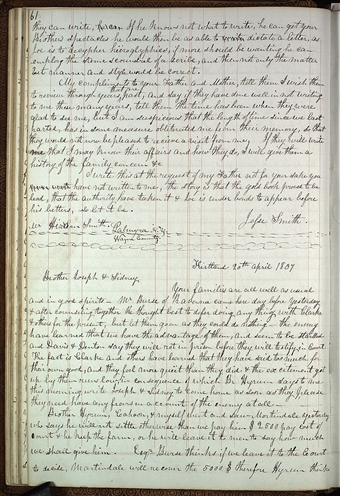 61
they can write, Hiram. If he knows not what to write, he can get your
Brothers spectacles he would then be as able to dictate a letter, as
Joe is to decypher hieroglyphics, if more should be wanting he can
employ the same scoundrel of a scribe, and then not only the matter
but manner and style would be correct.
My compliments to your Father and Mother, tell them I wish them
to review through years, past, and say if they have done well in not writing
to me these many years, tell them the time has been when they were
glad to see me, but I am suspicious that the length of time since we last
parted, has in some measure obliterated me from their memory, so that
they would not now be pleased to receive a visit from me, If they will write
me that I may know their affairs and how they do, I will give them a
history of the family concern &c
I write this at the request of my Father not for your sake you
have not written to me, the story is that the gold book proved to be
lead, that the authority have taken it & Joe is under bonds to appear before
his betters, so let it be.
Jesse Smith.
Mr Hiram Smith.
Palmyra
Kirtland 20th April 1837
Brother Joseph & Sidney
Your families are all well as usual
and in good spirits — Mr Burse of Ravenna came here day before yesterday
& after counseling together he thought best to defer doing any thing with Clarke
& others for the present, but let them go on as they could do nothing — the enemy
have learned that we have the advantage of them, and seem to be startled
and Davis & Denton say they will not injure you for they will testify in Court
The fact is Clarke and others have learned that they have said too much for
their own good, and they feel more quiet than they did & the excitement got
up by them runs low, in consequence of which Br Hyrum says to me
this morning write Joseph & Sidney to come home as soon as they please
they need have no fears on account of the enemy at all —
Brother Hyrum, Cahoon, & myself went and saw Martindale yesterday
who says he will not settle otherwise than we pay him $2500 pay cost of
Court & he keep the farm, or he will leave it to men to say how much
we shall give him. Esqr Burse thinks if we leave it to the Court
to decide, Martindale will recover the 5000 $ therefore Hyrum thinks